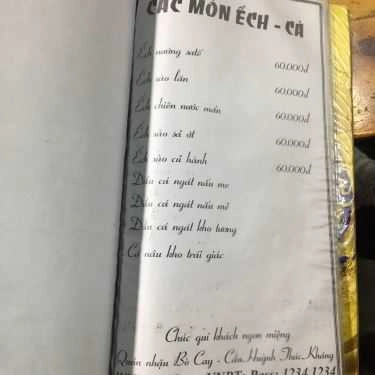 CÁC MÓN ẾCH - CÁ
Ếch nướng satế
60.000đ
Ếch xào lăn
60.000đ
Ếch chiên nước mắm
60.000đ
Ếch xào sả ớt
60.000đ
Ếch xào củ hành
60.000đ
- Đầu cá ngát nấu mẻ
- Đầu cá ngát nấu mẻ
- Đầu cá ngát kho tương
- Cá nâu kho trái giác
Chúc quí khách ngon miệng
Quán nhậu Bò Cạy - Cần Huỳnh Thúc Kháng
Pass: 1234 1234